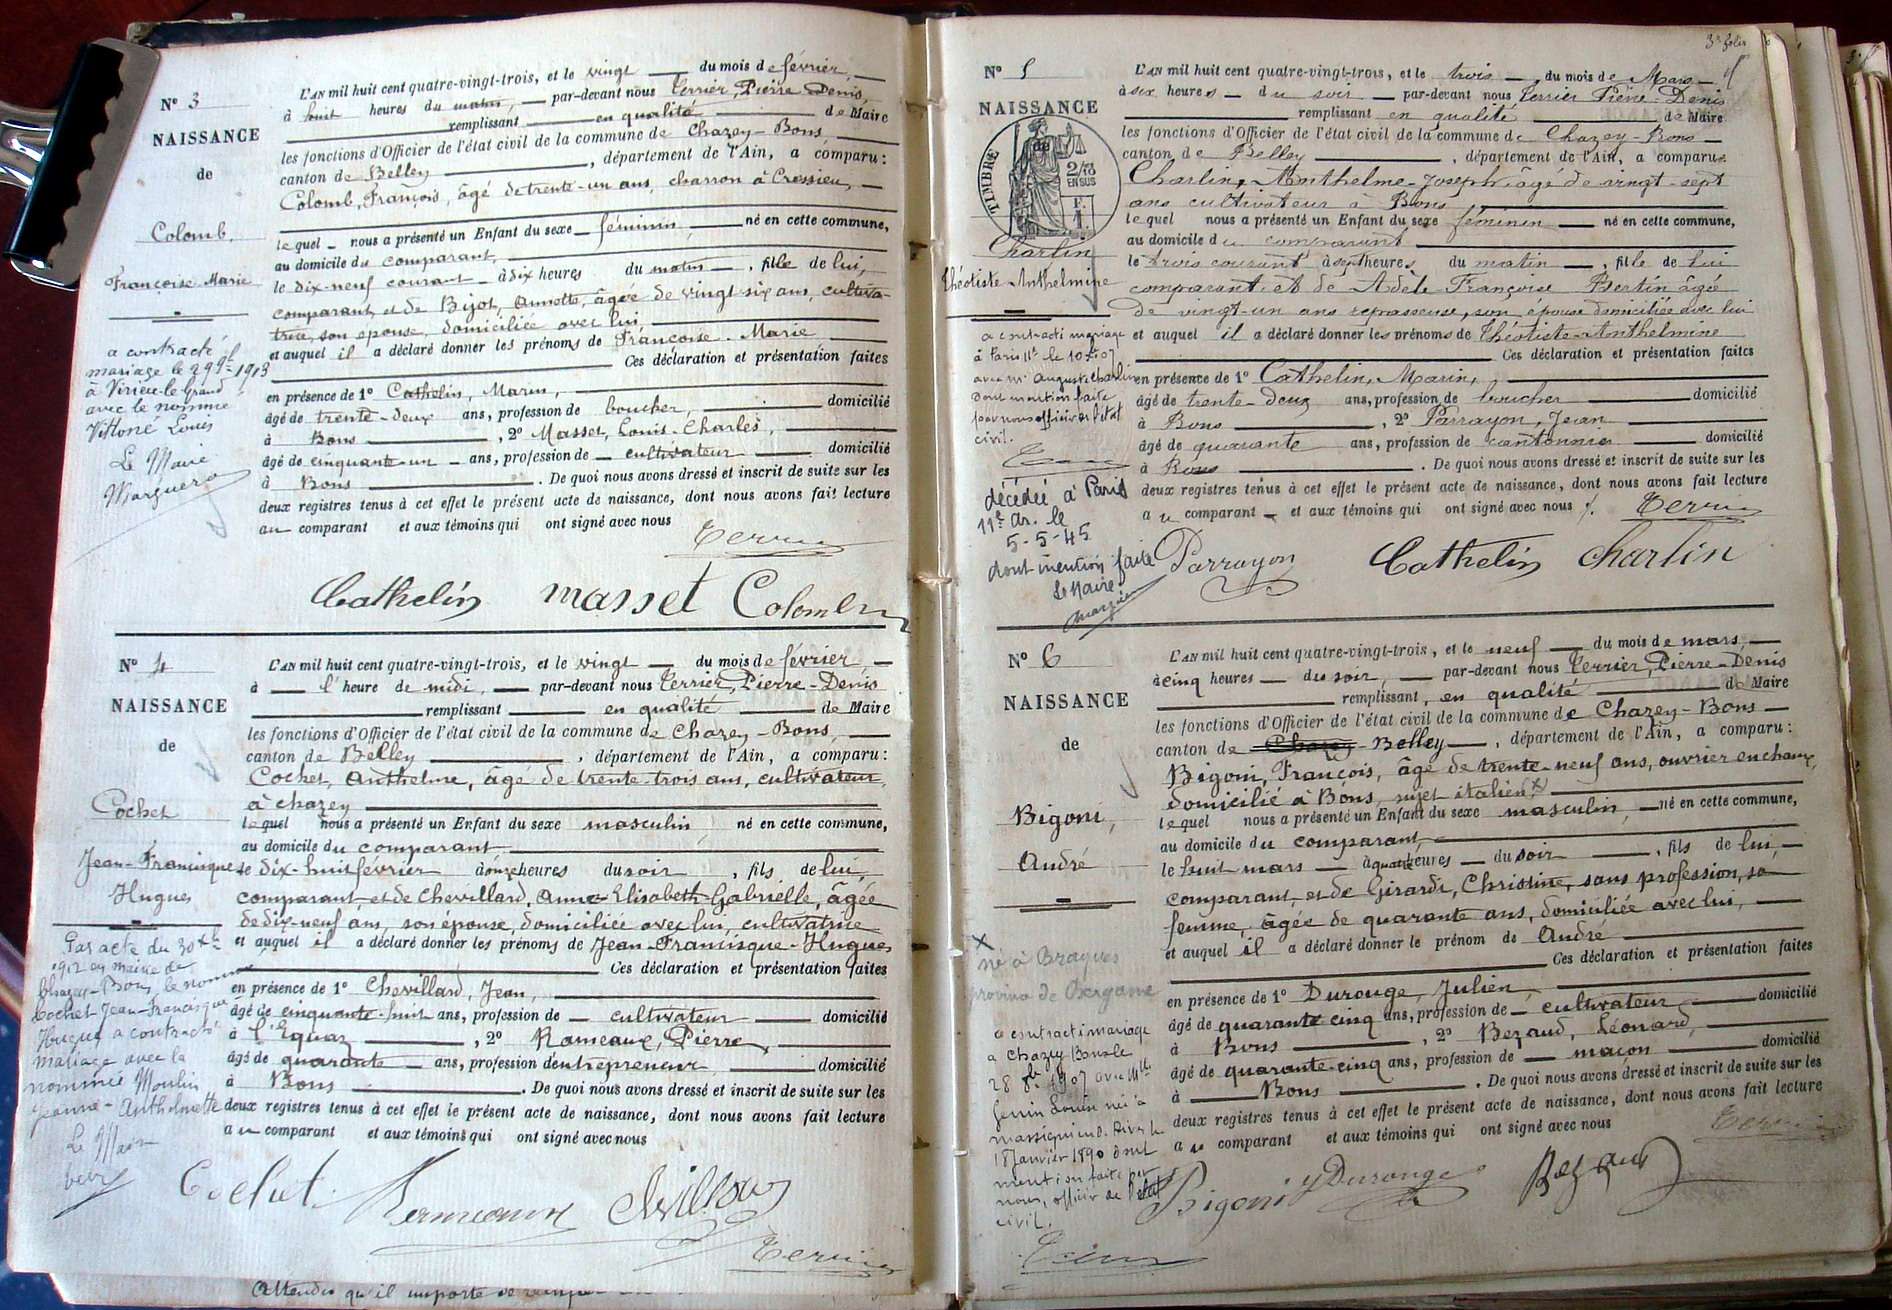 N° 3
NAISSANCE
de
Colomb,
Françoise Marie
a contracté
mariage le 29 1913
à Virieu-le-Grand
avec le nommé
Vittoné Louis
Le Maire
L'AN mil huit cent quatre-vingt-trois, et le vingt du mois de février,
à huit heures du matin, par-devant nous Terrier, Pierre-Denis,
remplissant en qualité de Maire
les fonctions d'Officier de l'état civil de la commune de Chazey-Bons
canton de Belley, département de l'Ain, a comparu:
Colomb, François, âgé de trente-un ans, charron à Cressieu,
lequel nous a présenté un Enfant du sexe féminin, né en cette commune,
au domicile du comparant,
le dix-neuf courant à dix heures du matin, fille de lui,
comparant, et de Bijot, Annette, âgée de vingt-six ans, cultiva-
trice, son épouse, domiciliée avec lui,
et auquel il a déclaré donner les prénoms de Françoise-Marie
Ces déclaration et présentation faites
en présence de 1° Cathelin, Marin,
âgé de trente-deux ans, profession de boucher, domicilié
à Bons, 2° Masset, Louis-Charles,
âgé de cinquante-un ans, profession de cultivateur domicilié
à Bons. De quoi nous avons dressé et inscrit de suite sur les
deux registres tenus à cet effet le présent acte de naissance, dont nous avons fait lecture
au comparant et aux témoins qui ont signé avec nous
Terrier
Cathelin masset Colomb
N° 4
NAISSANCE
de
Cochet
Jean-Francisque
Hugues
Par acte du 30
1912 en mairie de
Chazey-Bons, le nommé
Cochet Jean-Francisque
Hugues a contracté
mariage avec la
nommée Moulin
Jeanne-Anthelmette
Le Maire
L'AN mil huit cent quatre-vingt-trois, et le vingt du mois de février,
à l'heure de midi, par-devant nous Terrier, Pierre-Denis
remplissant en qualité de Maire
les fonctions d'Officier de l'état civil de la commune de Chazey-Bons,
canton de Belley, département de l'Ain, a comparu:
Cochet, Anthelme, âgé de trente-trois ans, cultivateur,
à Chazey
lequel nous a présenté un Enfant du sexe masculin, né en cette commune,
au domicile du comparant
le dix-huit février à onze heures du soir, fils de lui,
comparant, et de Chevillard, Anne-Elisabeth-Gabrielle, âgée
de dix-neuf ans, son épouse, domiciliée avec lui, cultivatrice
et auquel il a déclaré donner les prénoms de Jean-Francisque-Hugues
Ces déclaration et présentation faites
en présence de 1° Chevillard, Jean,
âgé de cinquante-huit ans, profession de cultivateur domicilié
à, 2° Rameaux, Pierre,
âgé de quarante ans, profession d'entrepreneur, domicilié
à Bons. De quoi nous avons dressé et inscrit de suite sur les
deux registres tenus à cet effet le présent acte de naissance, dont nous avons fait lecture
au comparant et aux témoins qui ont signé avec nous
Cochet
Terrier
Attendu qu'il importe de
3e folio
N° 5
NAISSANCE
de
TIMBRE
2/10
EN SUS
F.
1
Charlin
Théotiste-Anthelmine
a contracté mariage
à Paris 11e le 10 07
avec Mr Auguste Charlin
Dont mention faite
par nous officier de l'état
civil.
décédée à Paris
11e Ar. le
5-5-45
dont mention faite
Le Maire
L'AN mil huit cent quatre-vingt-trois, et le trois du mois de Mars
à six heures du soir par-devant nous Terrier Pierre-Denis
remplissant en qualité de Maire
les fonctions d'Officier de l'état civil de la commune de Chazey-Bons
canton de Belley, département de l'Ain, a comparu:
Charlin, Anthelme-Joseph, âgé de vingt-sept
ans cultivateur à Bons
lequel nous a présenté un Enfant du sexe féminin né en cette commune,
au domicile du comparant
le trois courant à sept heures du matin, fille de lui
comparant et de Adèle Françoise Bertin âgée
de vingt-un ans repasseuse, son épouse domiciliée avec lui
et auquel il a déclaré donner les prénoms de Théotiste-Anthelmine
Ces déclaration et présentation faites
en présence de 1° Cathelin, Marin,
âgé de trente-deux ans, profession de boucher domicilié
à Bons, 2° Parrayon, Jean
âgé de quarante ans, profession de cantonnier domicilié
à Bons. De quoi nous avons dressé et inscrit de suite sur les
deux registres tenus à cet effet le présent acte de naissance, dont nous avons fait lecture
au comparant et aux témoins qui ont signé avec nous
Terrier
Parrayon Cathelin Charlin
N° 6
NAISSANCE
de
Bigoni,
André
né à
province de Bergame
a contracté mariage
à Chazey-Bons le
28 1907 avec Mlle
Louise née à
18 Janvier 1890 dont
mention faite par
nous, officier de l'état
civil.
L'AN mil huit cent quatre-vingt-trois, et le neuf du mois de mars,
à cinq heures du soir, par-devant nous Terrier, Pierre-Denis
remplissant, en qualité de Maire
les fonctions d'Officier de l'état civil de la commune de Chazey-Bons
canton de Chazey-Belley, département de l'Ain, a comparu:
Bigoni, François, âgé de trente-neuf ans, ouvrier en chaux,
domicilié à Bons, sujet italien X
lequel nous a présenté un Enfant du sexe masculin, né en cette commune,
au domicile du comparant,
le huit mars à quatre heures du soir, fils de lui,
comparant, et de Girardi, Christine, sans profession, sa
femme, âgée de quarante ans, domiciliée avec lui,
et auquel il a déclaré donner le prénom de André
Ces déclaration et présentation faites
en présence de 1° Durouge, Julien
âgé de quarante-cinq ans, profession de cultivateur domicilié
à Bons, 2° Bezaud, Léonard,
âgé de quarante-cinq ans, profession de maçon domicilié
à Bons. De quoi nous avons dressé et inscrit de suite sur les
deux registres tenus à cet effet le présent acte de naissance, dont nous avons fait lecture
au comparant et aux témoins qui ont signé avec nous
Terrier
Bigoni Durouge Bezaud